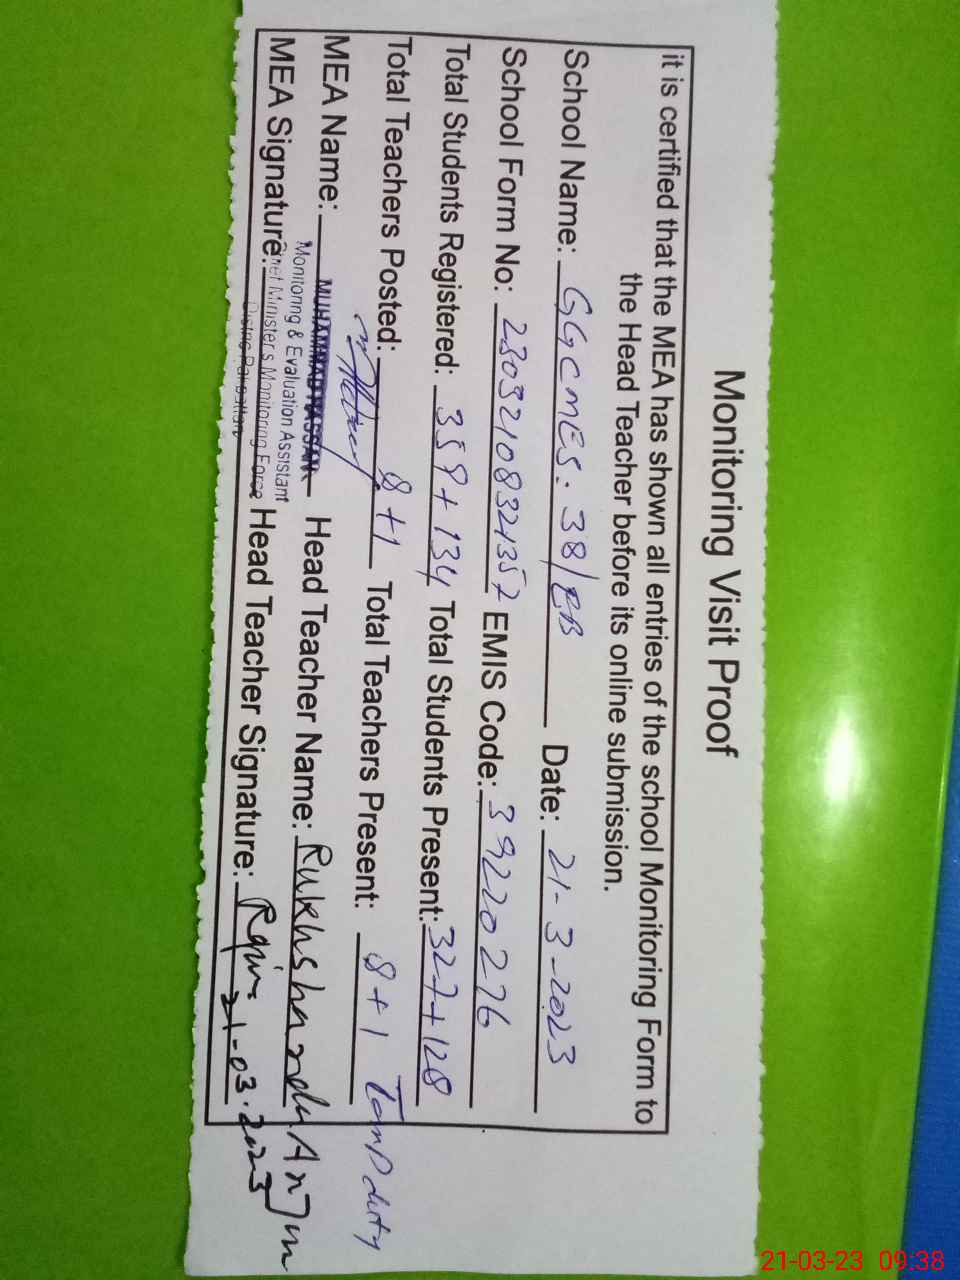 Monitoring Visit Proof
it is certified that the MEA has shown all entries of the school Monitoring Form to
the Head Teacher before its online submission.
School Name: GGCMES. 38/EB Date: 21-3-2023
School Form No: 23032108321352 EMIS Code: 39220276
Total Students Registered: 359+134 Total Students Present: 327+128
Total Teachers Posted: 8+1 Total Teachers Present: 8+1 Temp duty
MEA Name: MUHAMMAD HASSAN Head Teacher Name: Rukhshanda Anjum
Monitoring & Evaluation Assistant
MEA Signature: Chief Minister's Monitoring Force Head Teacher Signature:
Distric Pakpattan
21-03-2023
21-03-23 09:38